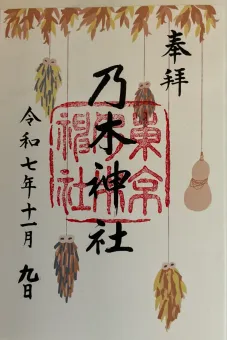 奉拝
乃木神社
令和七年十一月九日
東京
神社